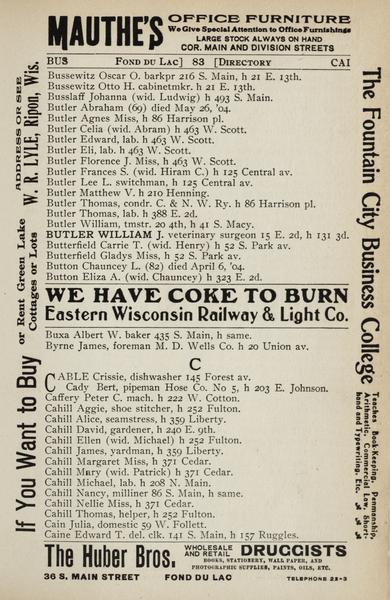 MAUTHE'S OFFICE FURNITURE
We Give Special Attention to Office Furnishings
LARGE STOCK ALWAYS ON HAND
COR. MAIN AND DIVISION STREETS
BUS FOND DU LAC] 83 [DIRECTORY CAI
Bussewitz Oscar O. barkpr 216 S. Main, h 21 E. 13th.
Bussewitz Otto H. cabinetmkr. h 21 E. 13th.
Busslaff Johanna (wid. Ludwig) h 493 S. Main.
Butler Abraham (69) died May 26, '04.
Butler Agnes Miss, h 86 Harrison pl.
Butler Celia (wid. Abram) h 463 W. Scott.
Butler Edward, lab. h 463 W. Scott.
Butler Eli, lab. h 463 W. Scott.
Butler Florence J. Miss, h 463 W. Scott.
Butler Frances S. (wid. Hiram C.) h 125 Central av.
Butler Lee L. switchman, h 125 Central av.
Butler Matthew V. h 210 Henning.
Butler Thomas, condr. C. & N. W. Ry. h 86 Harrison pl.
Butler Thomas, lab. h 388 E. 2d.
Butler William, tmstr. 20 4th, h 41 S. Macy.
BUTLER WILLIAM J. veterinary surgeon 15 E. 2d, h 131 3d.
Butterfield Carrie T. (wid. Henry) h 52 S. Park av.
Butterfield Gladys Miss, h 52 S. Park av.
Button Chauncey L. (82) died April 6, '04.
Button Eliza A. (wid. Chauncey) h 323 E. 2d.
WE HAVE COKE TO BURN
Eastern Wisconsin Railway & Light Co.
Buxa Albert W. baker 435 S. Main, h same.
Byrne James, foreman M. D. Wells Co. h 20 Union av.
C
CABLE Crissie, dishwasher 145 Forest av.
Cady Bert, pipeman Hose Co. No 5, h 203 E. Johnson.
Caffery Peter C. mach. h 222 W. Cotton.
Cahill Aggie, shoe stitcher, h 252 Fulton.
Cahill Alice, seamstress, h 359 Liberty.
Cahill David, gardener, h 240 E. 9th.
Cahill Ellen (wid. Michael) h 252 Fulton.
Cahill James, yardman, h 359 Liberty.
Cahill Margaret Miss, h 371 Cedar.
Cahill Mary (wid. Patrick) h 371 Cedar.
Cahill Michael, lab. h 208 N. Main.
Cahill Nancy, milliner 86 S. Main, h same.
Cahill Nellie Miss, h 371 Cedar.
Cahill Thomas, helper, h 252 Fulton.
Cain Julia, domestic 59 W. Follett.
Caine Edward T. del. clk. 141 S. Main, h 157 Ruggles.
The Huber Bros. WHOLESALE AND RETAIL DRUGGISTS
BOOKS, STATIONERY, WALL PAPER, AND
PHOTOGRAPHIC SUPPLIES, PAINTS, OILS, ETC.
36 S. MAIN STREET FOND DU LAC TELEPHONE 22-3
If You Want to Buy
or Rent Green Lake
Cottages or Lots
ADDRESS OR SEE
W. R. LYLE, Ripon, Wis.
The Fountain City Business College
Teaches Book-Keeping, Penmanship,
Arithmetic, Commercial Law, Short-
hand and Typewriting, Etc.